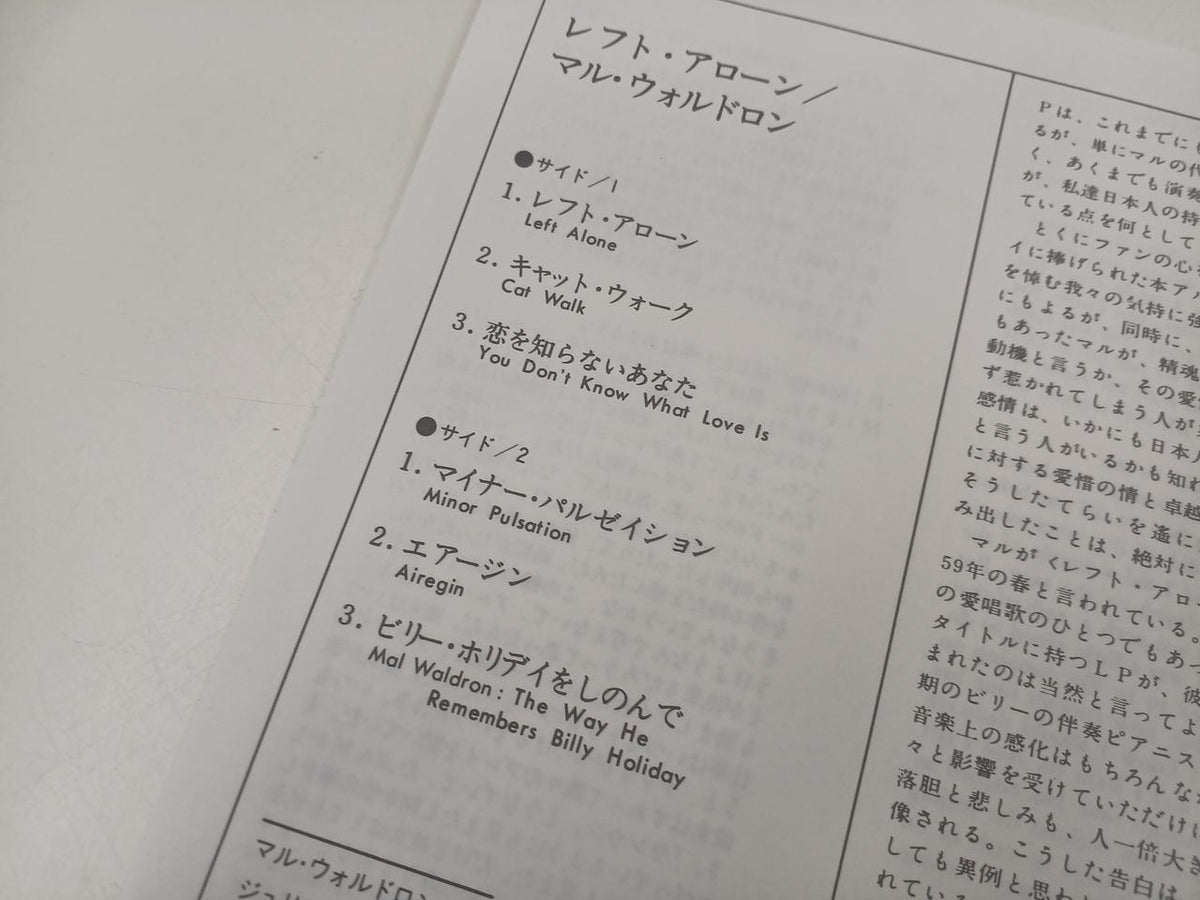 レフト・アローン／
マル・ウォルドロン
●サイド／1
1. レフト・アローン
Left Alone
2. キャット・ウォーク
Cat Walk
3. 恋を知らないあなた
You Don't Know What Love Is
●サイド／2
1. マイナー・パルゼイション
Minor Pulsation
2. エアージン
Airegin
3. ビリー・ホリデイをしのんで
Mal Waldron : The Way He
Remembers Billy Holiday
マル・ウォルドロン
Pは、これまでに
るが、単にマルの代
く、あくまでも演奏
が、私達日本人の持
ている点を何として
とくにファンの心
イに捧げられた本ア
を悼む我々の気持に強
にもよるが、同時に、
もあったマルが、精魂
動機と言うか、その愛
ず惹かれてしまう人が
感情は、いかにも日本人
と言う人がいるかも知れ
に対する愛惜の情と卓越
そうしたてらいを遙に
み出したことは、絶対に
マルが〈レフト・アロ
59年の春と言われている。
の愛唱歌のひとつでもあっ
タイトルに持つＬＰが、彼
まれたのは当然と言ってよ
期のビリーの伴奏ピアニス
音楽上の感化はもちろんな
々と影響を受けていただけに
落胆と悲しみも、人一倍大き
像される。こうした告白は
しても異例と思わ
れている